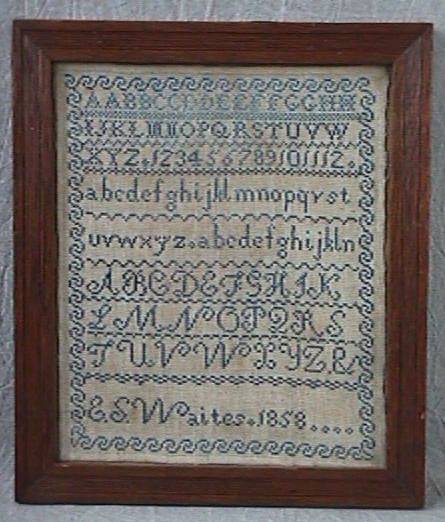 AABBCCDDEEFFGGHH
IJKLMNOPQRSTUVW
XYZ.123456789101112.
abcdefghijklmnopqrst
uvwxyz.abcdefghijkln
ABCDEFGHIK
LMNOPQRS
TUVWXYZ&
E.S.Waites.1858....